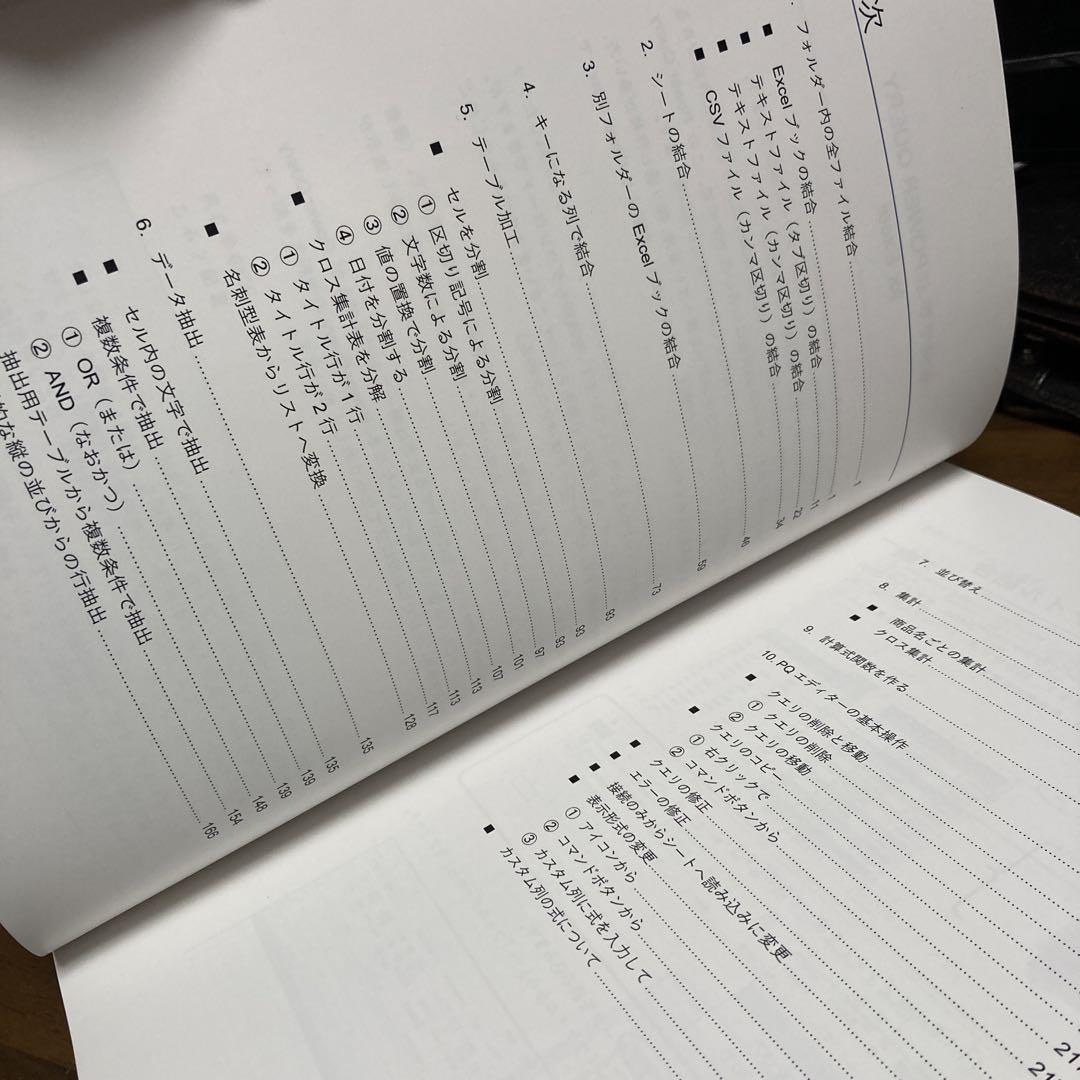 次
フォルダー内の全ファイル結合 1
■ Excel ブックの結合 1
■ テキストファイル（タブ区切り）の結合 11
■ テキストファイル（カンマ区切り）の結合 22
■ CSV ファイル（カンマ区切り）の結合 34
2. シートの結合 46
3. 別フォルダーの Excel ブックの結合 59
4. キーになる列で結合 73
5. テーブル加工 93
■ セルを分割 93
① 区切り記号による分割 93
② 文字数による分割 97
③ 値の置換で分割 101
④ 日付を分割する 107
■ クロス集計表を分解 113
① タイトル行が 1 行 113
② タイトル行が 2 行 117
■ 名刺型表からリストへ変換 128
6. データ抽出 135
■ セル内の文字で抽出 135
■ 複数条件で抽出 139
① OR（または） 139
② AND（なおかつ） 148
抽出用テーブルから複数条件で抽出 154
的な縦の並びからの行抽出 166
7. 並び替え
8. 集計
■ 商品名ごとの集計
クロス集計
9. 計算式関数を作る
10. PQ エディターの基本操作
■ クエリの削除と移動
① クエリの削除
② クエリの移動
■ クエリのコピー
① 右クリックで
② コマンドボタンから
■ クエリの修正
■ エラーの修正
■ 接続のみからシートへ読み込みに変更
■ 表示形式の変更
① アイコンから
② コマンドボタンから
③ カスタム列に式を入力して
■ カスタム列の式について